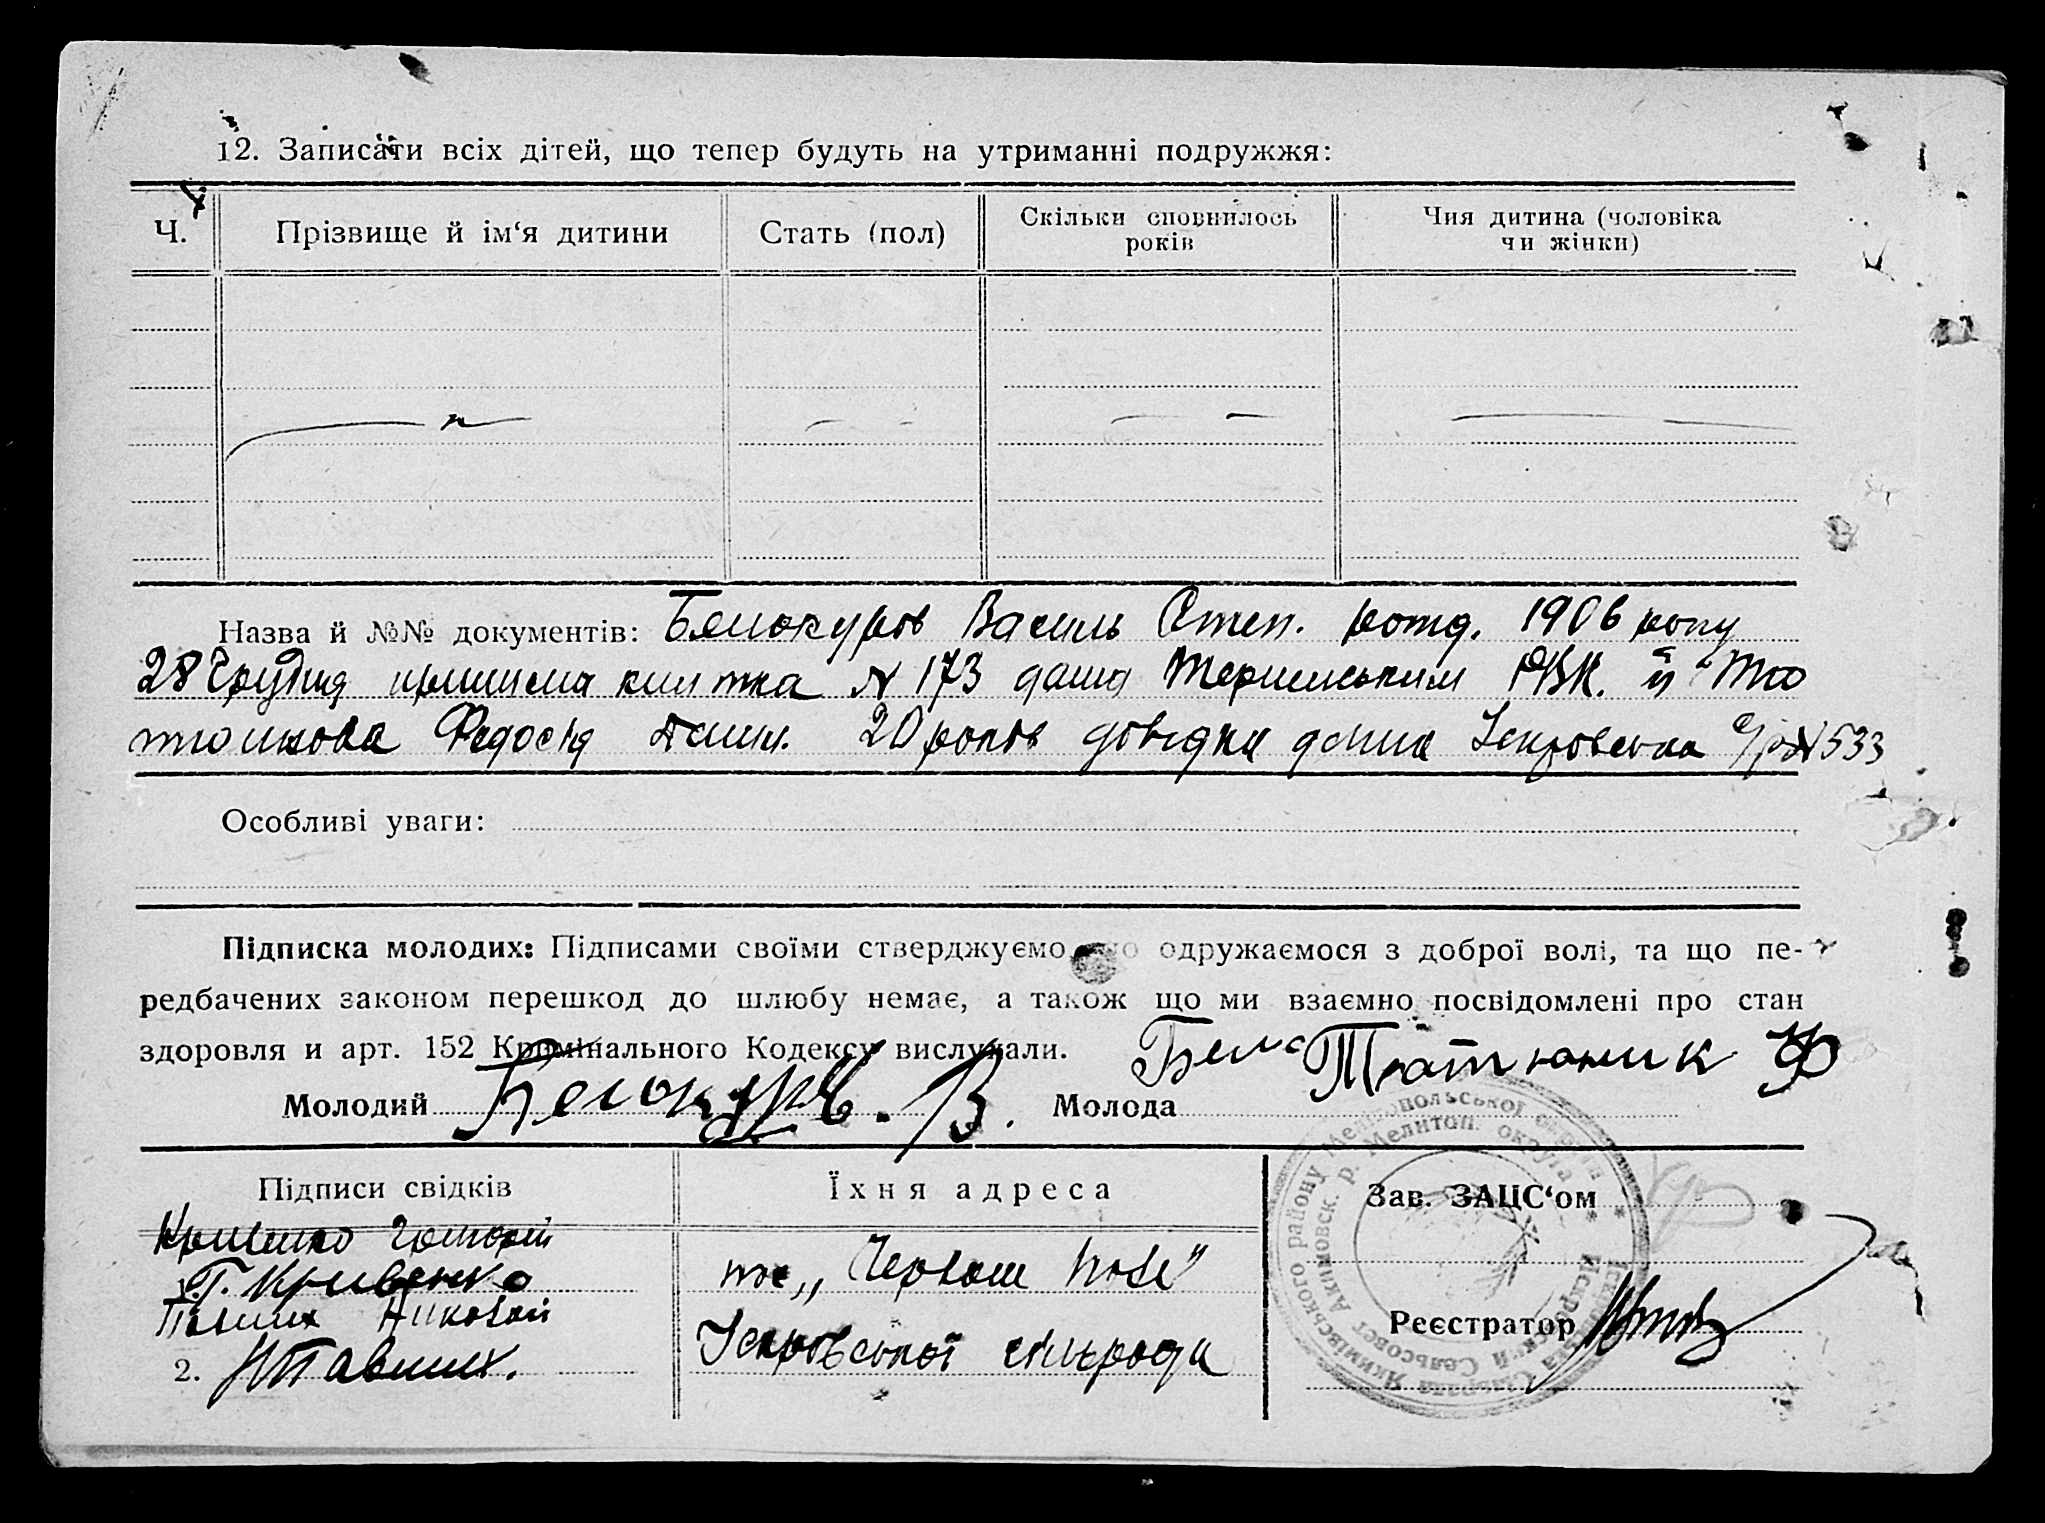 12. Записати всіх дітей, що тепер будуть на утриманні подружжя:
Ч. Прізвище й ім‘я дитини Стать (пол) Скільки сповнилось років Чия дитина (чоловіка чи жінки)
Назва й №№ документів: Белокуров Василь Степ. рожд. 1906 року
28 Грудня книжка № 173 дана РВК. й
Федосія 20 років довідка дана Іскровська с/р № 533
Особливі уваги:
Підписка молодих: Підписами своїми стверджуємо, що одружаємося з доброї волі, та що пе-
редбачених законом перешкод до шлюбу немає, а також що ми взаємно посвідомлені про стан
здоровля и арт. 152 Кримінального Кодексу вислухали.
Молодий Белокуров. В. Молода Тютюник Ф
Підписи свідків Їхня адреса Зав. ЗАЦС‘ом
Кривенко Григорій
1. Г. Кривенко тов „Червоне Поле"
Николай
2. Іскровської сільрада Реєстратор
Якимівського району Мелітопольської округи * Іскровська Сільрада
Акимовск. р. Мелитоп. округа * Искровский Сельсовет